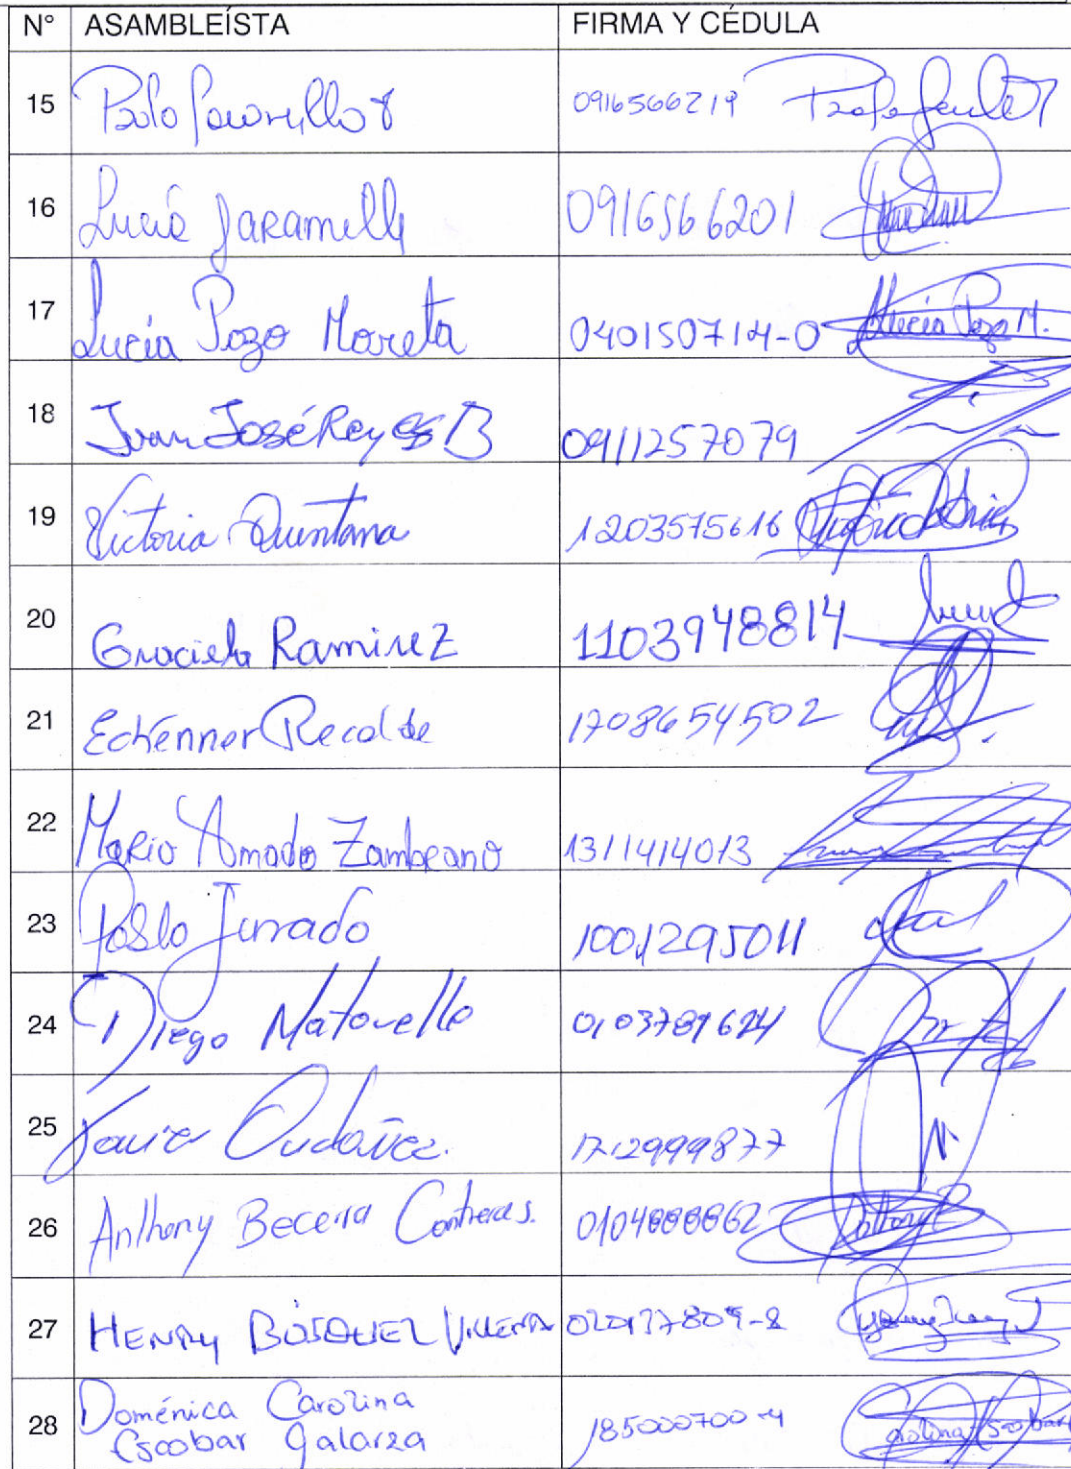 N° ASAMBLEÍSTA FIRMA Y CÉDULA
15 0916566219
16 Lucía Jaramillo 0916566201
17 Lucía Pozo Moreta 040150714-0 Lucía Pozo M.
18 Juan José Reyes B 0911257079
19 Victoria Quintana 1203575616
20 Graciela Ramirez 1103948814
21 Eckenner Recalde 1708654502
22 Mario Amado Zambrano 1311414013
23 Pablo Jurado 1001295011
24 Diego Matovelle
25 Javier Ordóñez. 1712999877
26 Anthony Becerra Contreras.
27 HENRY BÓSQUEZ VILLENA
28 Doménica Carolina
Escobar Galarza 185000700-4 Carolina Escobar